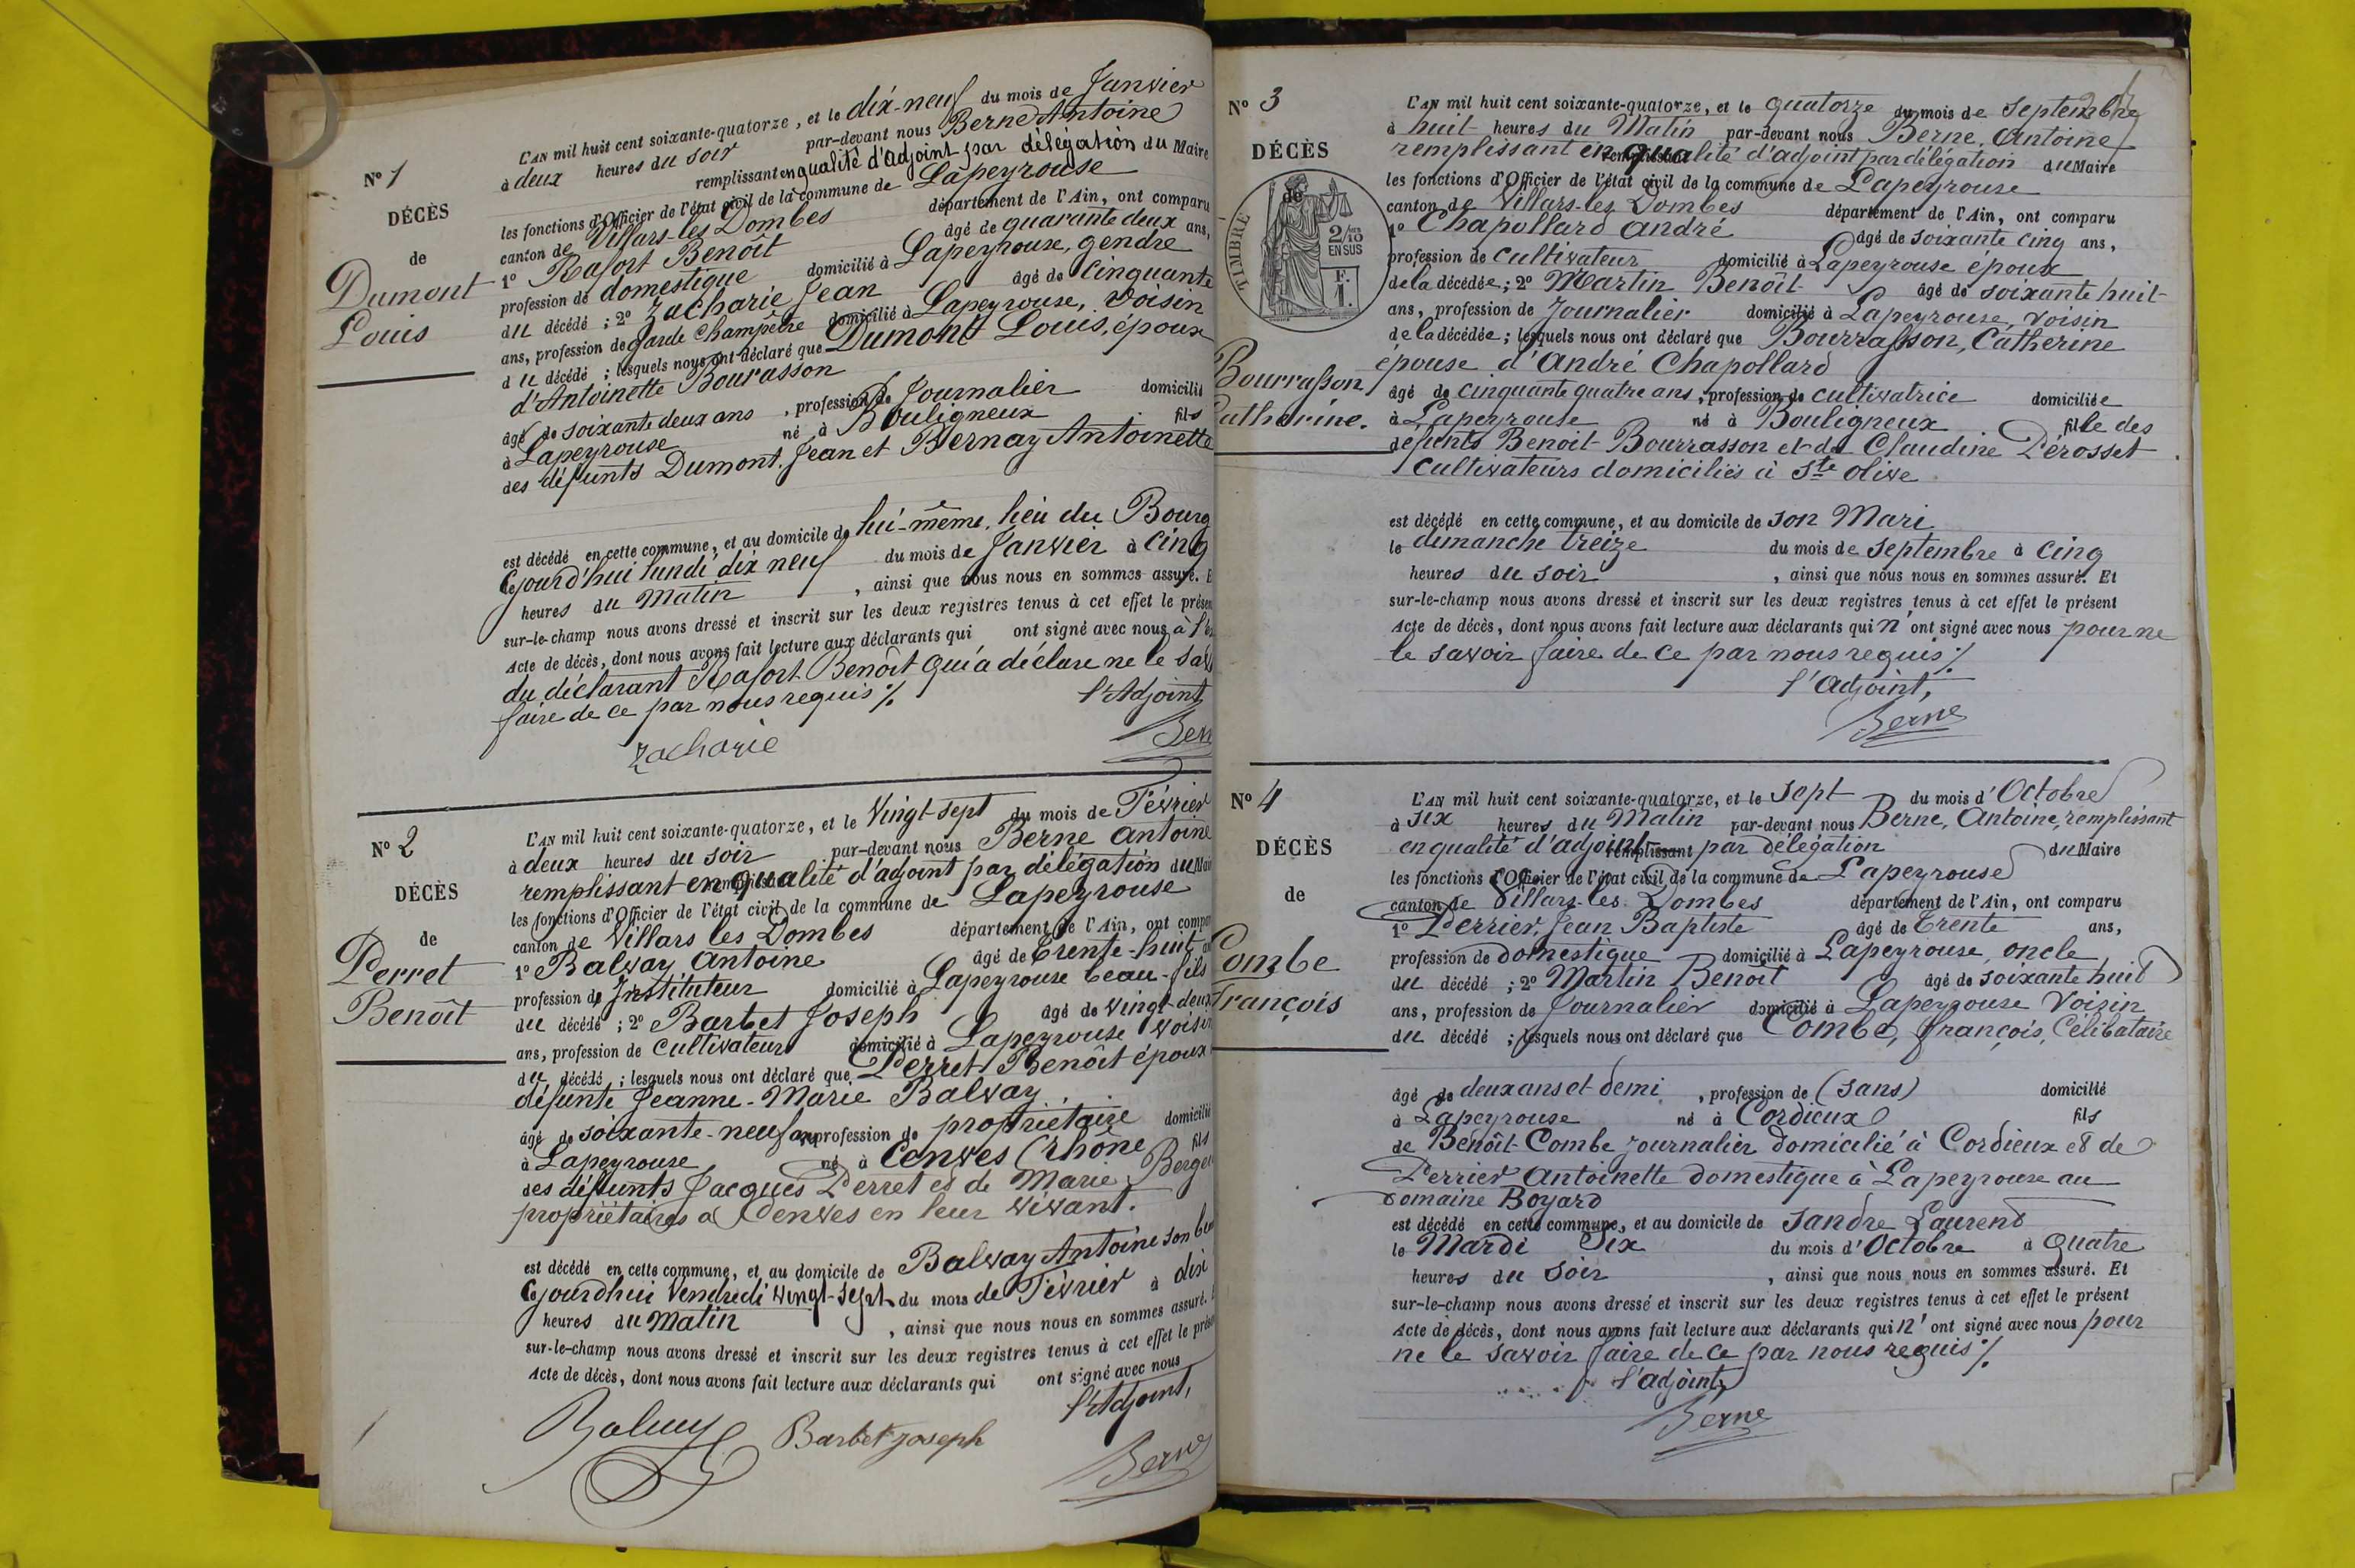 N° 1
DÉCÈS
de
Dumont
Louis
L'AN mil huit cent soixante-quatorze, et le dix-neuf du mois de Janvier
à deux heures du soir par-devant nous Berne Antoine
remplissant en qualité d'adjoint par délégation du Maire
les fonctions d'Officier de l'état civil de la commune de Lapeyrouse
canton de Villars-les Dombes département de l'Ain, ont comparu
1° Rafort Benoît âgé de quarante deux ans,
profession de domestique domicilié à Lapeyrouse, gendre
du décédé ; 2° Zacharie Jean âgé de Cinquante
ans, profession de garde Champêtre domicilié à Lapeyrouse, Voisin
du décédé ; lesquels nous ont déclaré que Dumont Louis, époux
d'Antoinette Bourasson
âgé de soixante deux ans , profession de Journalier domicilié
à Lapeyrouse né à Bouligneux fils
des défunts Dumont Jean et Bernay Antoinette
est décédé en cette commune, et au domicile de lui-même, lieu du Bourg
Cejourd'hui lundi dix neuf du mois de Janvier à cinq
heures du Matin , ainsi que nous nous en sommes assuré. E
sur-le-champ nous avons dressé et inscrit sur les deux registres tenus à cet effet le présen
Acte de décès, dont nous avons fait lecture aux déclarants qui ont signé avec nous à l'ex
du déclarant Rafort Benoît qui a déclaré ne le sav
faire de ce par nous requis ⁒ l'Adjoint
Zacharie Bern
N° 2
DÉCÈS
de
Perret
Benoît
L'AN mil huit cent soixante-quatorze, et le Vingt-sept du mois de Février
à deux heures du soir par-devant nous Berne Antoine
remplissant en qualité d'adjoint par délégation du Mai
les fonctions d'Officier de l'état civil de la commune de Lapeyrouse
canton de Villars les Dombes département de l'Ain, ont compar
1° Balvay Antoine âgé de Trente-huit an
profession de Instituteur domicilié à Lapeyrouse beau-fils
du décédé ; 2° Barbet Joseph âgé de Vingt-deux
ans, profession de Cultivateur domicilié à Lapeyrouse Voisin
du décédé ; lesquels nous ont déclaré que Perret Benoît époux
défunte Jeanne-Marie Balvay
âgé de soixante-neuf ans profession de propriétaire domicilié
à Lapeyrouse né à Cenves (Rhône fils
des défunts Jacques Perret et de Marie Berge
propriétaires à Cenves en leur vivant.
est décédé en cette commune, et au domicile de Balvay Antoine son be
Cejourdhui Vendredi Vingt-Sept du mois de Février à dix
heures du Matin , ainsi que nous nous en sommes assuré.
sur-le-champ nous avons dressé et inscrit sur les deux registres tenus à cet effet le présen
Acte de décès, dont nous avons fait lecture aux déclarants qui ont signé avec nous
l'Adjoint,
Balvay Barbet Joseph Berne
N° 3
DÉCÈS
de
TIMBRE
2/10
EN SUS
F.
1.
Bourrasson
Catherine.
L'AN mil huit cent soixante-quatorze, et le quatorze du mois de Septembre
à huit heures du Matin par-devant nous Berne, Antoine
remplissant en qualité d'adjoint par délégation du Maire
les fonctions d'Officier de l'état civil de la commune de Lapeyrouse
canton de Villars-les Dombes département de l'Ain, ont comparu
1° Chapollard André âgé de soixante cinq ans,
profession de cultivateur domicilié à Lapeyrouse époux
de la décédée ; 2° Martin Benoît âgé de soixante huit
ans, profession de Journalier domicilié à Lapeyrouse, voisin
de la décédée ; lesquels nous ont déclaré que Bourrasson, Catherine
épouse d'André Chapollard
âgé de cinquante quatre ans , profession de cultivatrice domiciliée
à Lapeyrouse né à Bouligneux fille des
défunts Benoit Bourrasson et de Claudine Pérosset
cultivateurs domiciliés à Ste Olive
est décédé en cette commune, et au domicile de son Mari
le dimanche treize du mois de septembre à cinq
heures du soir , ainsi que nous nous en sommes assuré. Et
sur-le-champ nous avons dressé et inscrit sur les deux registres tenus à cet effet le présent
Acte de décès, dont nous avons fait lecture aux déclarants qui n'ont signé avec nous pour ne
le savoir faire de ce par nous requis ⁒
l'Adjoint,
Berne
N° 4
DÉCÈS
de
Combe
François
L'AN mil huit cent soixante-quatorze, et le Sept du mois d'Octobre
à six heures du Matin par-devant nous Berne, Antoine, remplissant
en qualité d'adjoint remplissant par délégation du Maire
les fonctions d'Officier de l'état civil de la commune de Lapeyrouse
canton de Villars-les-Dombes département de l'Ain, ont comparu
1° Perrier, Jean Baptiste âgé de Trente ans,
profession de domestique domicilié à Lapeyrouse, oncle
du décédé ; 2° Martin Benoit âgé de soixante huit
ans, profession de Journalier domicilié à Lapeyrouse Voisin
du décédé ; lesquels nous ont déclaré que Combe, François, Célibataire
âgé de deux ans et demi , profession de (sans) domicilié
à Lapeyrouse né à Cordieux fils
de Benoît Combe journalier domicilié à Cordieux et de
Perrier Antoinette domestique à Lapeyrouse au
domaine Boyard
est décédé en cette commune, et au domicile de Sandre Laurent
le Mardi Six du mois d'Octobre à Quatre
heures du Soir , ainsi que nous nous en sommes assuré. Et
sur-le-champ nous avons dressé et inscrit sur les deux registres tenus à cet effet le présent
Acte de décès, dont nous avons fait lecture aux déclarants qui n'ont signé avec nous pour
ne le savoir faire de ce par nous requis ⁒
l'adjoint,
Berne